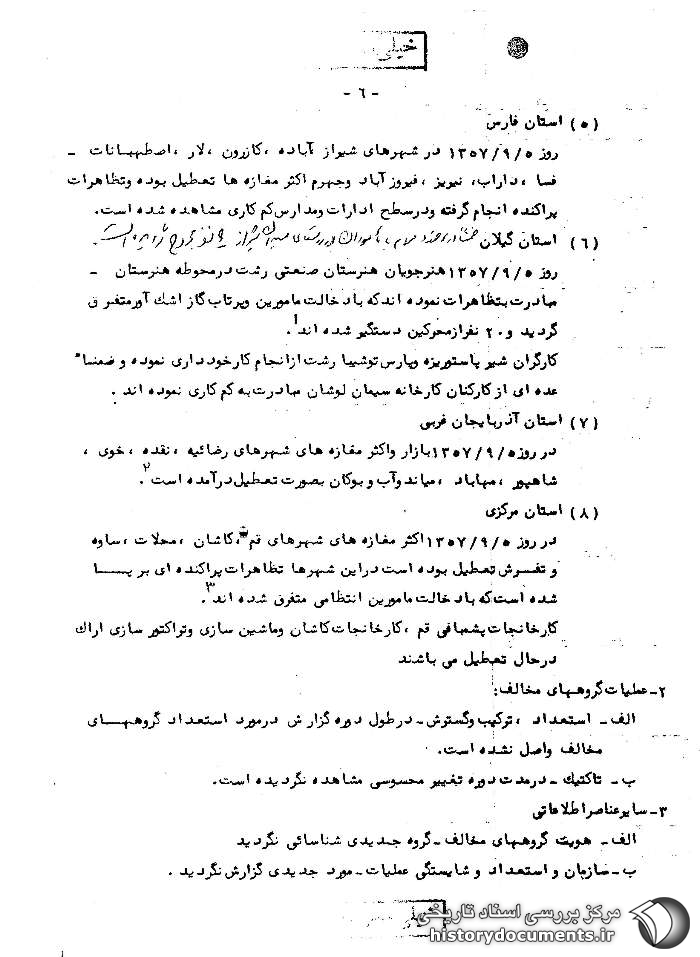 خیلی
- ٦ -
(٥) استان فارس
روز ١٣٥٧/٩/٥ در شهرهای شیراز آباده ، کازرون ، لار ، اصطهبانات -
فسا ، داراب ، نیریز ، فیروزآباد وجهرم اکثر مغازه ها تعطیل بوده وتظاهرات
پراکنده انجام گرفته ودرسطح ادارات ومدارس کم کاری مشاهده شده است.
(٦) استان گیلان
روز ١٣٥٧/٩/٥ هنرجویان هنرستان صنعتی رشت درمحوطه هنرستان -
مبادرت بتظاهرات نموده اند که با دخالت مامورین وپرتاب گاز اشك آورمتفرق
گردید و ٢٠ نفرازمحرکین دستگیر شده اند ١.
کارگران شیر پاستوریزه وپارس توشیبا رشت ازانجام کارخودداری نموده و ضمنا"
عده ای از کارکنان کارخانه سیمان لوشان مبادرت به کم کاری نموده اند .
(٧) استان آذربایجان غربی
در روز ١٣٥٧/٩/٥ بازار واکثر مغازه های شهرهای رضائیه ، نقده ، خوی ،
شاهپور ، مهاباد ، میاندوآب و بوکان بصورت تعطیل درآمده است ٢.
(٨) استان مرکزی
در روز ١٣٥٧/٩/٥ اکثر مغازه های شهرهای قم ، کاشان ، محلات ، ساوه
و تفرش تعطیل بوده است دراین شهرها تظاهرات پراکنده ای برپا
شده است که با دخالت مامورین انتظامی متفرق شده اند ٣.
کارخانجات پشمبافی قم ، کارخانجات کاشان وماشین سازی وتراکتور سازی اراك
درحال تعطیل می باشند
٢- عملیات گروههای مخالف:
الف - استعداد ، ترکیب وگسترش - درطول دوره گزارش درمورد استعداد گروههای
مخالف واصل نشده است.
ب - تاکتیك - درمدت دوره تغییر محسوسی مشاهده نگردیده است.
٣- سایرعناصر اطلاعاتی
الف - هویت گروههای مخالف - گروه جدیدی شناسائی نگردید
ب - سازمان و استعداد و شایستگی عملیات - مورد جدیدی گزارش نگردید .
مرکز بررسی اسناد تاریخی
historydocuments.ir